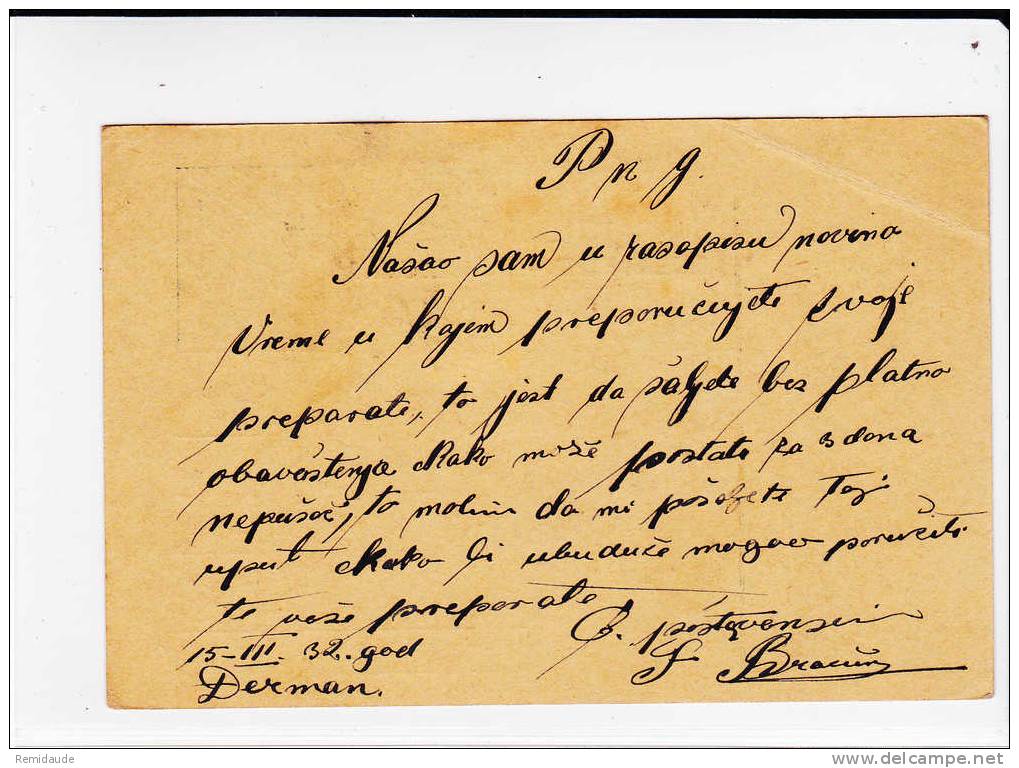 P n g.
Našao sam u časopisu novina
Vreme u kojem preporučujete svoje
preparate, to jest da šaljete bez platno
obaveštenja kako može postati za 3 dana
nepušač, to molim da mi pošaljete taj
uput kako bi ubuduće mogao poručiti
te vaše preparate
S. poštovanjem
15-III. 32. god
Derman.
Remidaude
delcampe.net